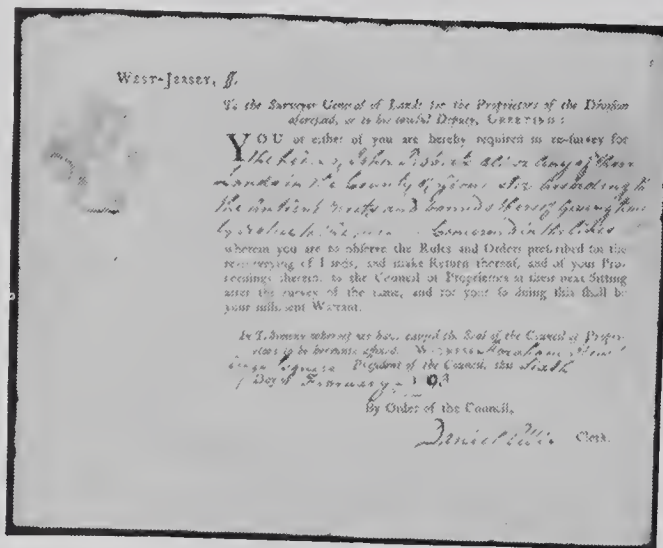 WEST-JERSEY, ss.
To the Surveyor General of Lands for the Proprietors of the Division
aforesaid, or to his lawful Deputy, GREETING:
YOU or either of you are hereby required to re-survey for
the heirs of John all or any of their
lands in the County of according to
the antient meets and bounds thereof having
in the like
wherein you are to observe the Rules and Orders prescribed for the
re-surveying of Lands, and make Return thereof, and of your Pro-
ceedings therein, to the Council of Proprietors at their next Sitting
after the survey of the same, and for your so doing this shall be
your sufficient Warrant.
In Testimony whereof we have caused the Seal of the Council of Propri-
etors to be hereunto affixed. WITNESS Abraham
Esquire President of the Council, this sixth
Day of February
By Order of the Council,
Daniel Ellis Clerk.